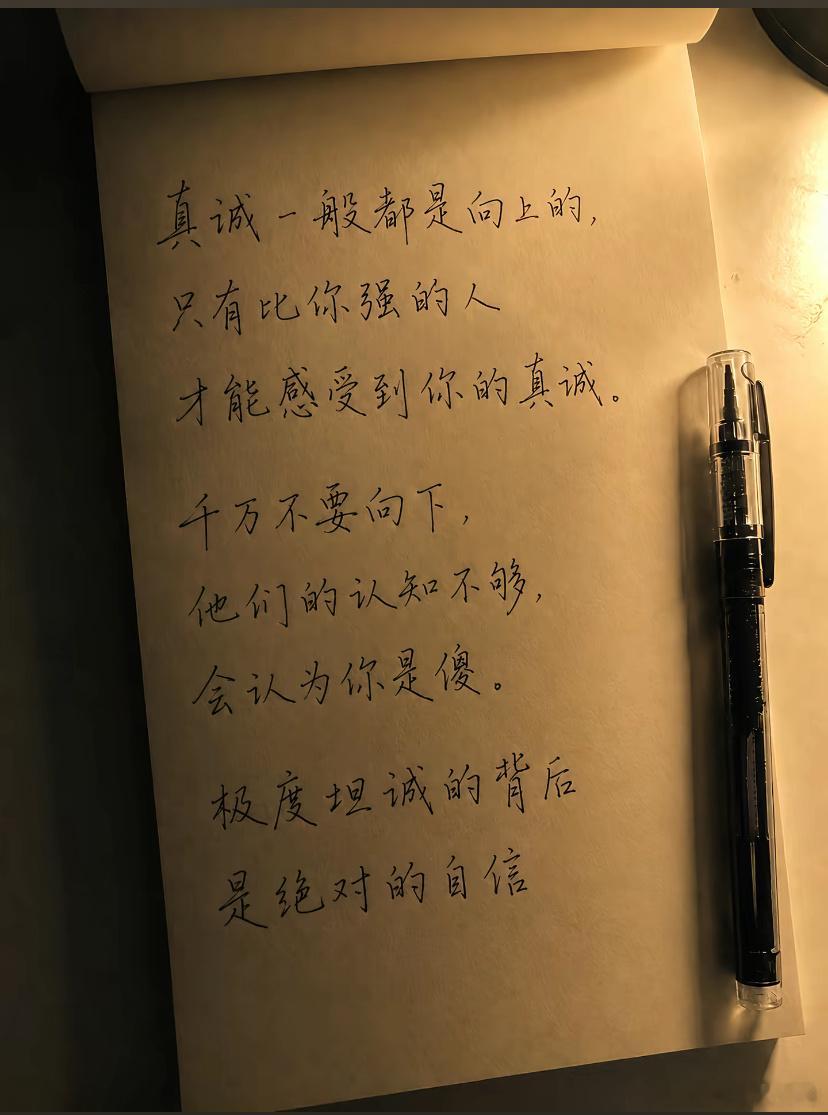 真诚一般都是向上的,
只有比你强的人
才能感受到你的真诚。
千万不要向下,
他们的认知不够,
会认为你是傻。
极度坦诚的背后
是绝对的自信